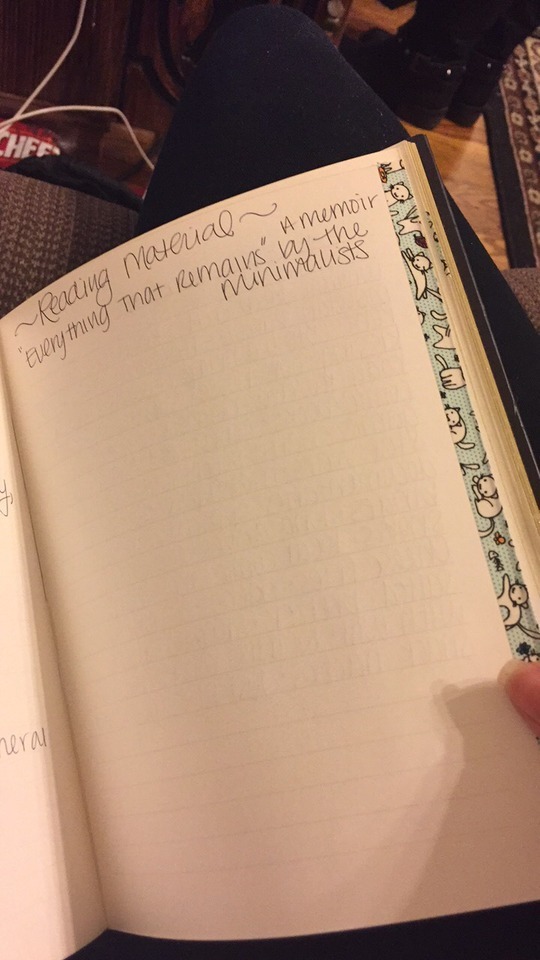 ~Reading Material~
"Everything That Remains" A memoir
by the
minimalists
neral
CHEE